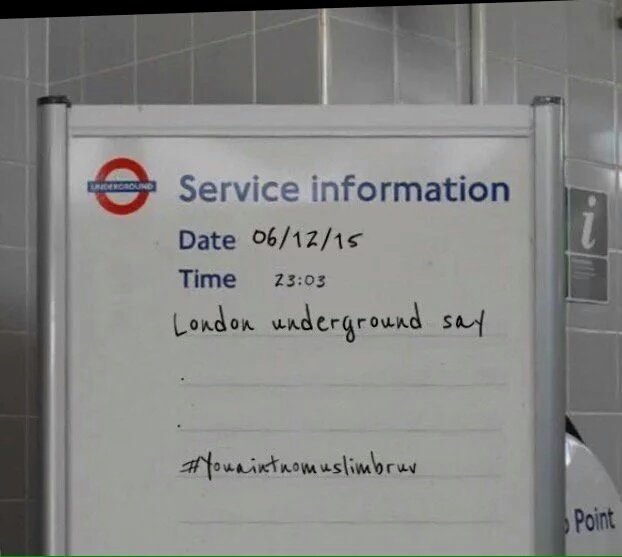 UNDERGROUND
Service information
Date 06/12/15
Time 23:03
London underground say
.
.
#Youaintnomuslimbruv
i
Point